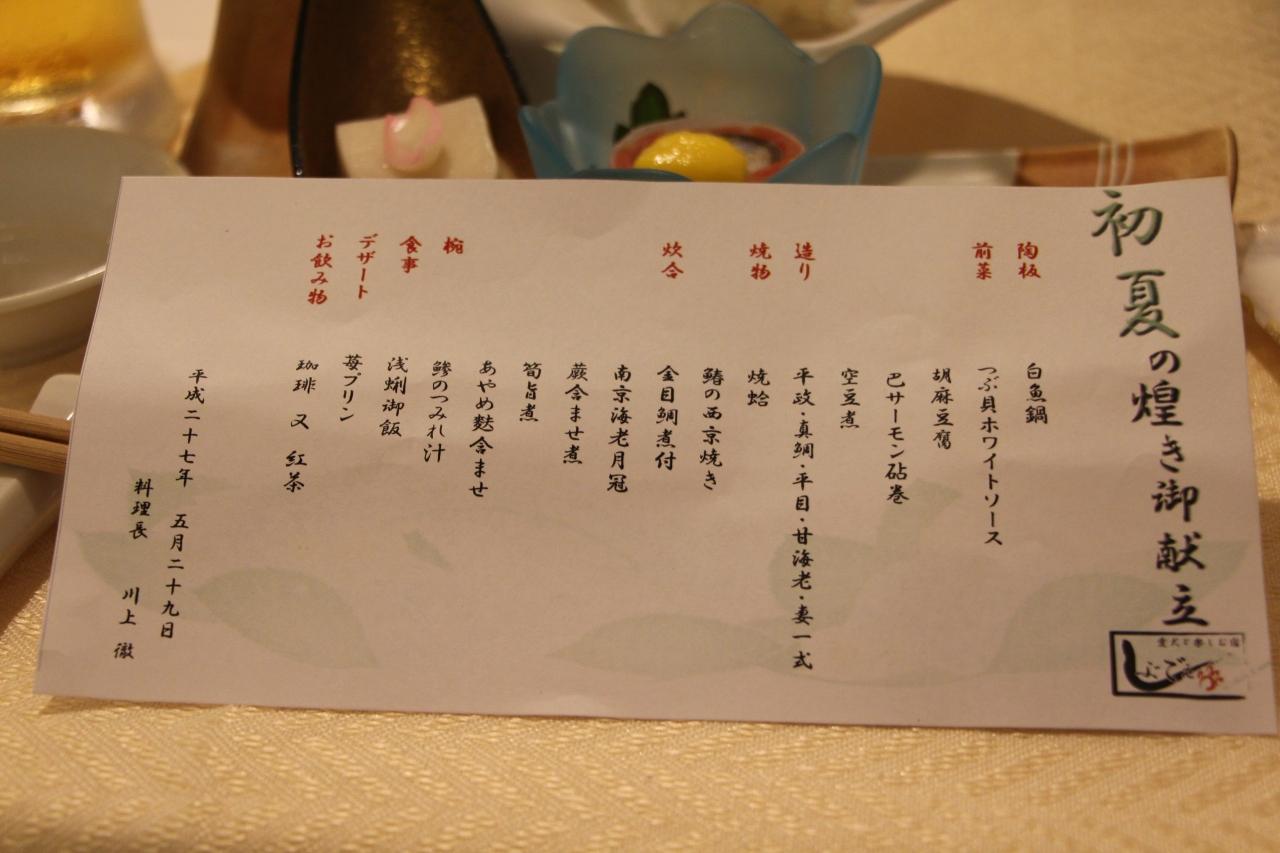 初夏の煌き御献立
陶板
白魚鍋
前菜
つぶ貝ホワイトソース
胡麻豆腐
巴サーモン砧巻
空豆煮
造り
平政・真鯛・平目・甘海老・妻一式
焼物
焼蛤
鰆の西京焼き
炊合
金目鯛煮付
南京海老月冠
蕨含ませ煮
筍旨煮
あやめ麩含ませ
椀
鯵のつみれ汁
食事
浅蜊御飯
デザート
苺プリン
お飲み物
珈琲 又 紅茶
平成二十七年 五月二十九日
料理長 川上 徹